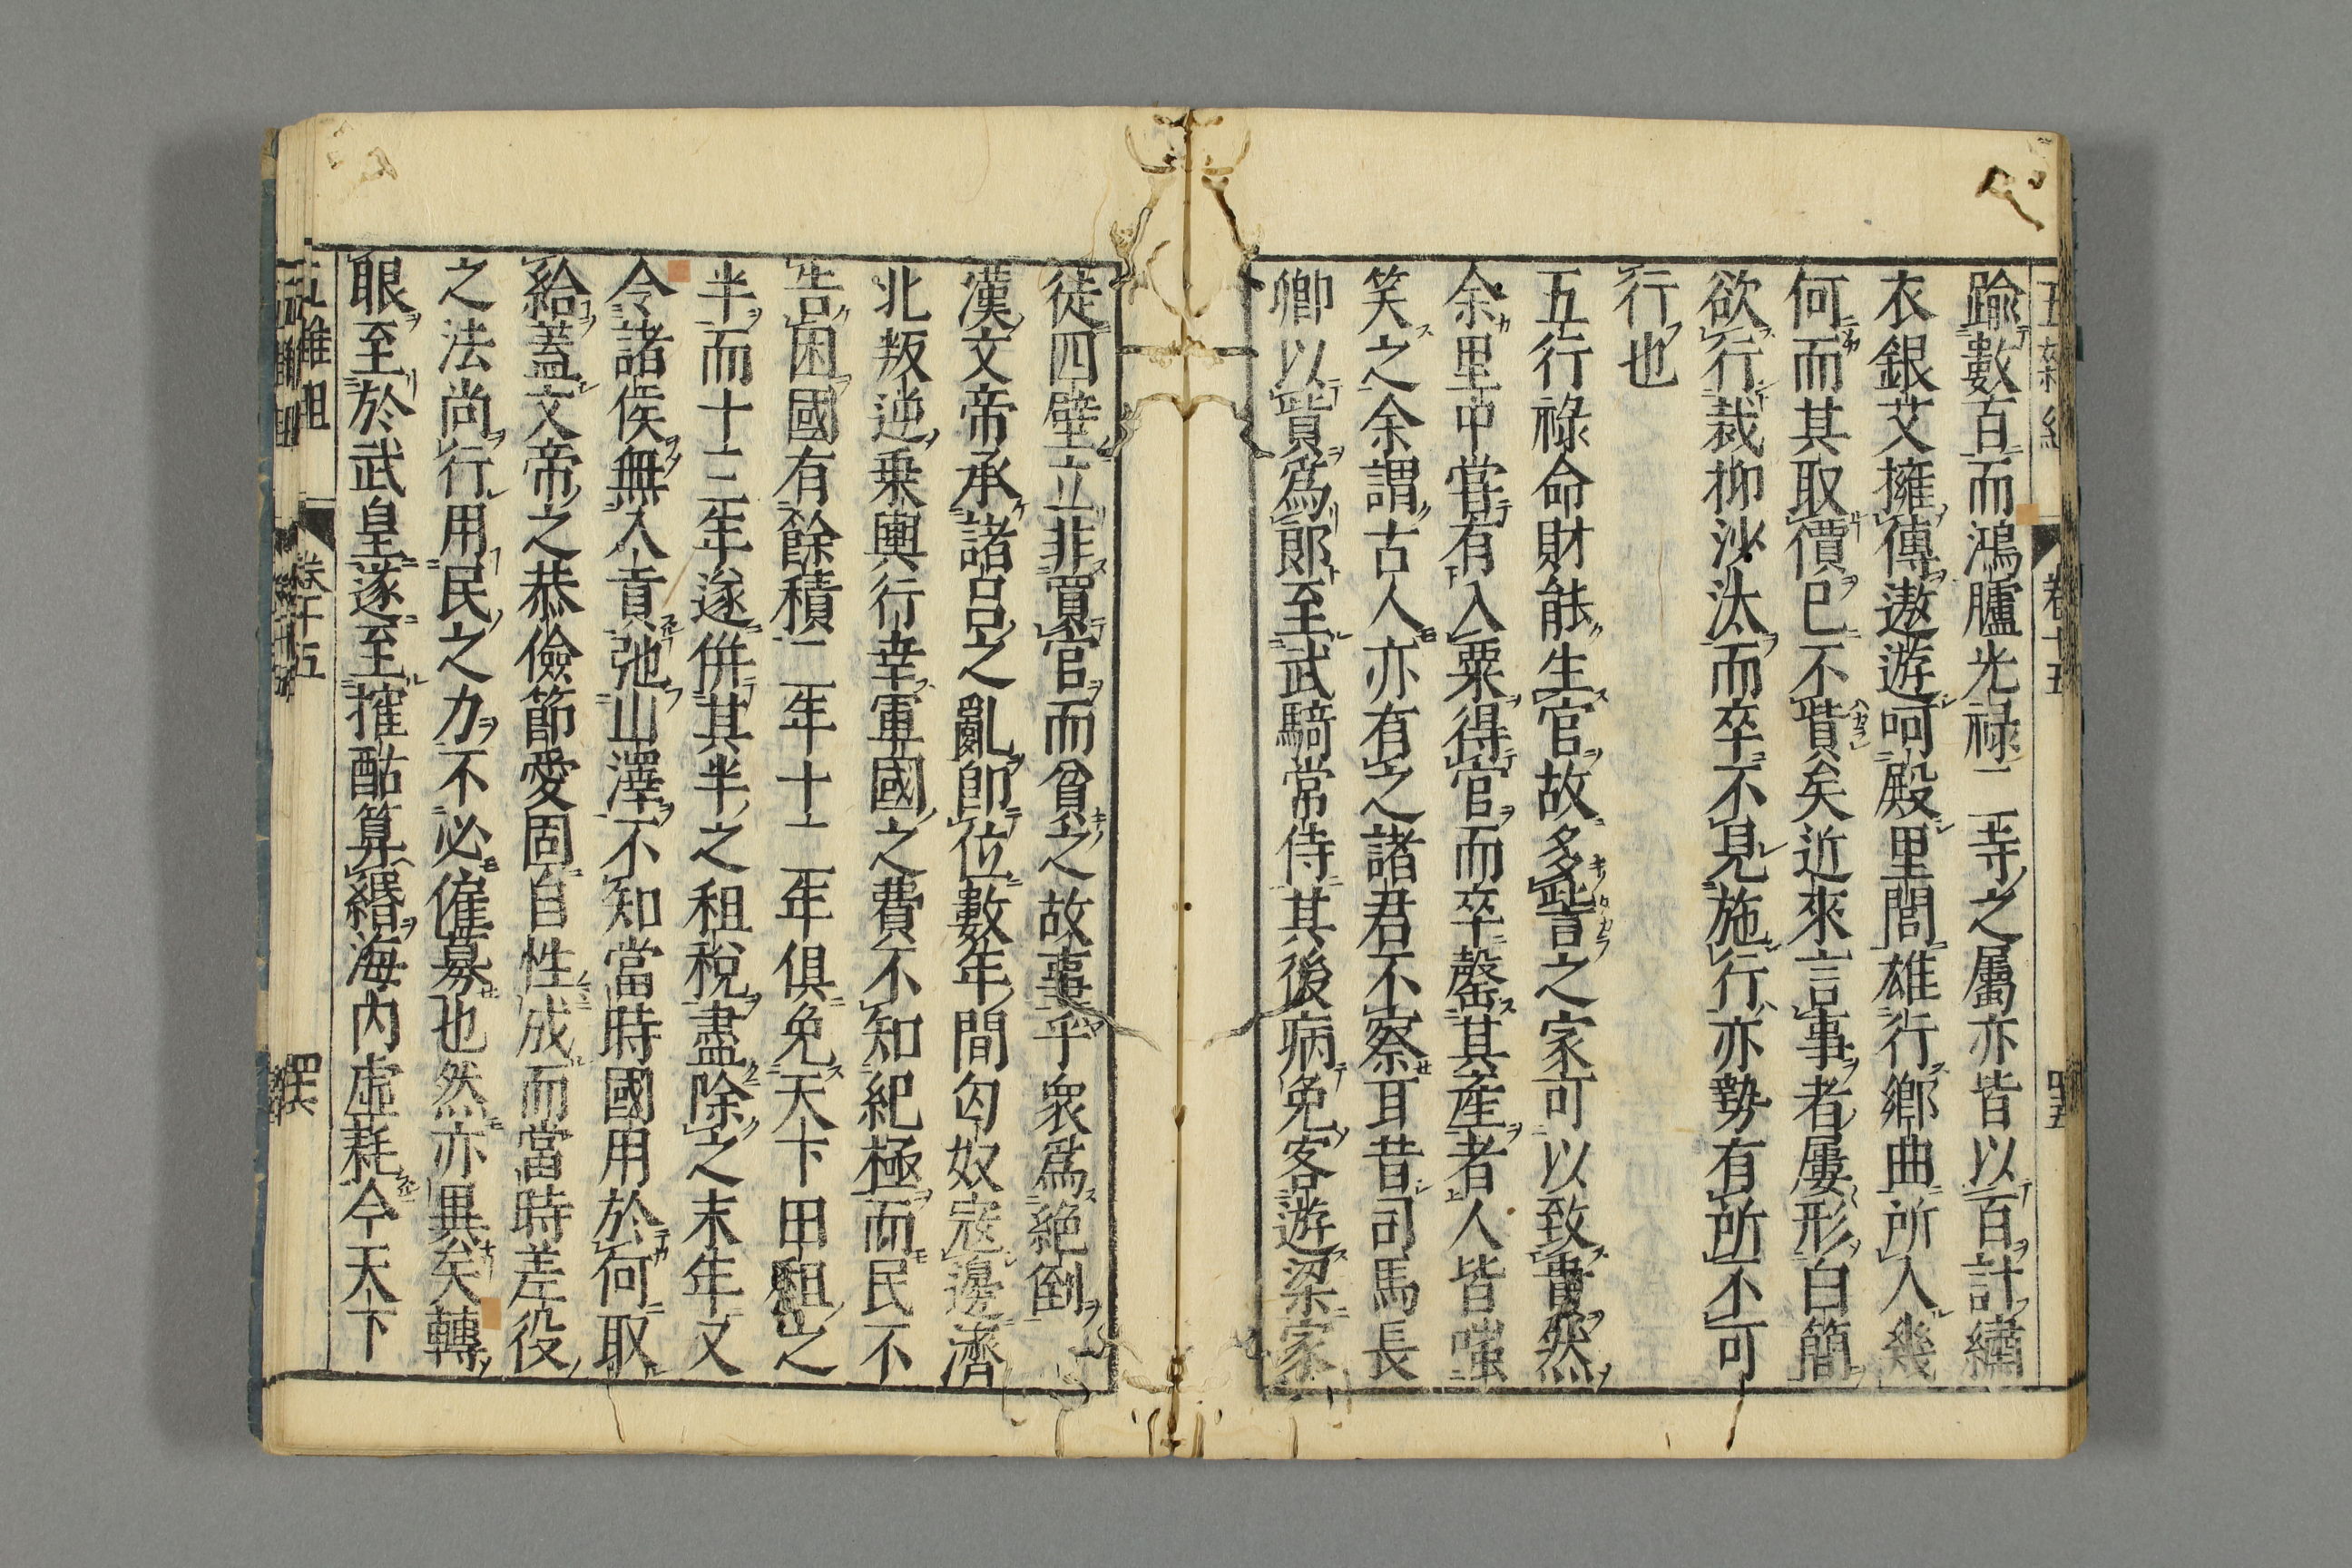 踰數百而鴻臚光祿二寺之屬亦皆以百計繡
衣銀艾擁傳遨遊呵殿里閭雄行鄉曲所入幾
何而其取價已不貲矣近來言事者屢形白簡
欲行裁抑沙汰而卒不見施行亦勢有所不可
行也
五行祿命財能生官故多訾之家可以致貴然
余里中嘗有入粟得官而卒罄其產者人皆嗤
笑之余謂古人亦有之諸君不察耳昔司馬長
卿以貲爲郎至武騎常侍其後病免客遊梁家
徒四壁立非買官而貧之故事乎衆爲絕倒
漢文帝承諸呂之亂卽位數年間匈奴寇邊濟
北叛逆乗輿行幸軍國之費不知紀極而民不
告困國有餘積二年十二年俱免天下田租之
半而十三年遂併其半之租稅盡除之末年又
令諸侯無入貢弛山澤不知當時國用於何取
給蓋文帝之恭儉節愛固自性成而當時差役
之法尚行用民之力不必僱募也然亦異矣轉
眼至於武皇遂至搉酤算緡海內虛耗今天下
五雜組
卷十五
四五
五雜組
卷十五
四六